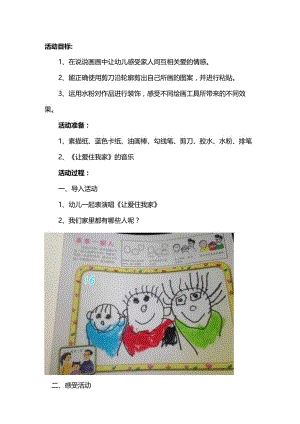 活动目标:
1、在说说画画中让幼儿感受家人间互相关爱的情感。
2、能正确使用剪刀沿轮廓剪出自己所画的图案，并进行粘贴。
3、运用水粉对作品进行装饰，感受不同绘画工具所带来的不同效
果。
活动准备：
1、素描纸、蓝色卡纸、油画棒、勾线笔、剪刀、胶水、水粉、排笔
2、《让爱住我家》的音乐
活动过程：
一、导入活动
1、幼儿一起表演唱《让爱住我家》
2、我们家里都有哪些人呢？
二、感受活动